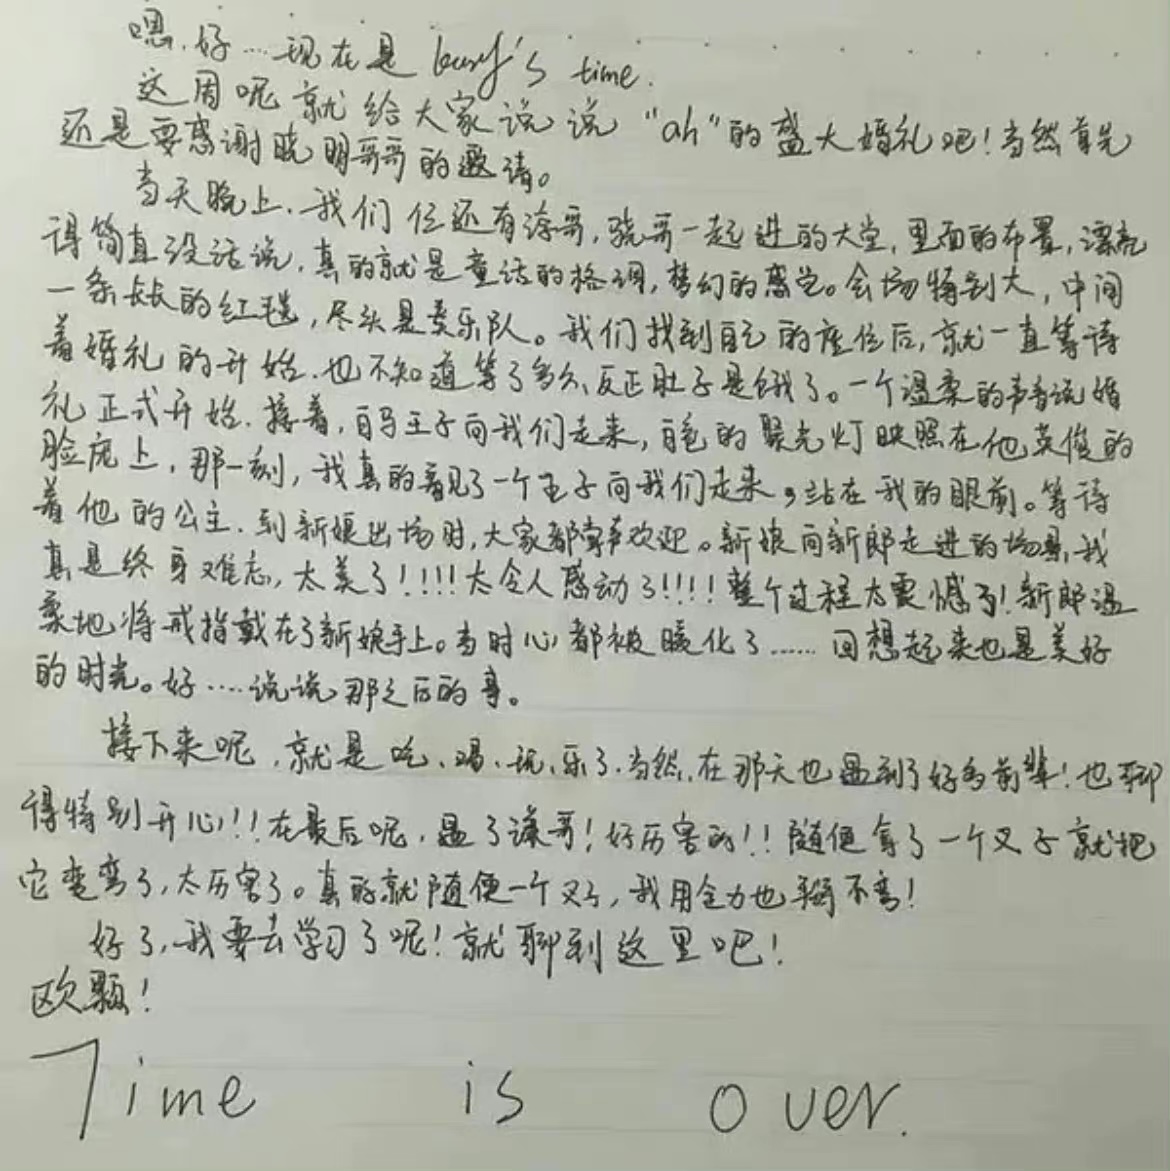 嗯,好……现在是 's time.
这周呢就给大家说说"ah"的盛大婚礼吧!当然首先
还是要感谢晓明哥哥的邀请。
当天晚上,我们 还有涛哥,骁哥一起进的大堂,里面的布置,漂亮
得简直没话说,真的就是童话的格调,梦幻的感觉。会场特别大,中间
一条长长的红毯,尽头是 乐队。我们找到自己的座位后,就一直等待
着婚礼的开始.也不知道等了多久,反正肚子是饿了。一个温柔的声音说婚
礼正式开始.接着,白马王子向我们走来,白色的聚光灯映照在他英俊的
脸庞上,那一刻,我真的看见了一个王子向我们走来,站在我的眼前。等待
着他的公主.到新娘出场时,大家都掌声欢迎。新娘向新郎走进的场景,我
真是终身难忘,太美了!!!!太令人感动了!!!!整个过程太震憾了!新郎温
柔地将戒指戴在了新娘手上。当时心都被暖化了……回想起来也是美好
的时光。好……说说那之后的事。
接下来呢,就是吃、喝、玩、乐了.当然,在那天也遇到了好多前辈!也聊
得特别开心!!在最后呢,遇了 哥!好厉害的!!随便拿了一个叉子就把
它 弯了,太厉害了。真的就随便一个叉子,我用全力也掰不弯!
好了,我要去学习了呢!就聊到这里吧!
欧颗!
Time is over.